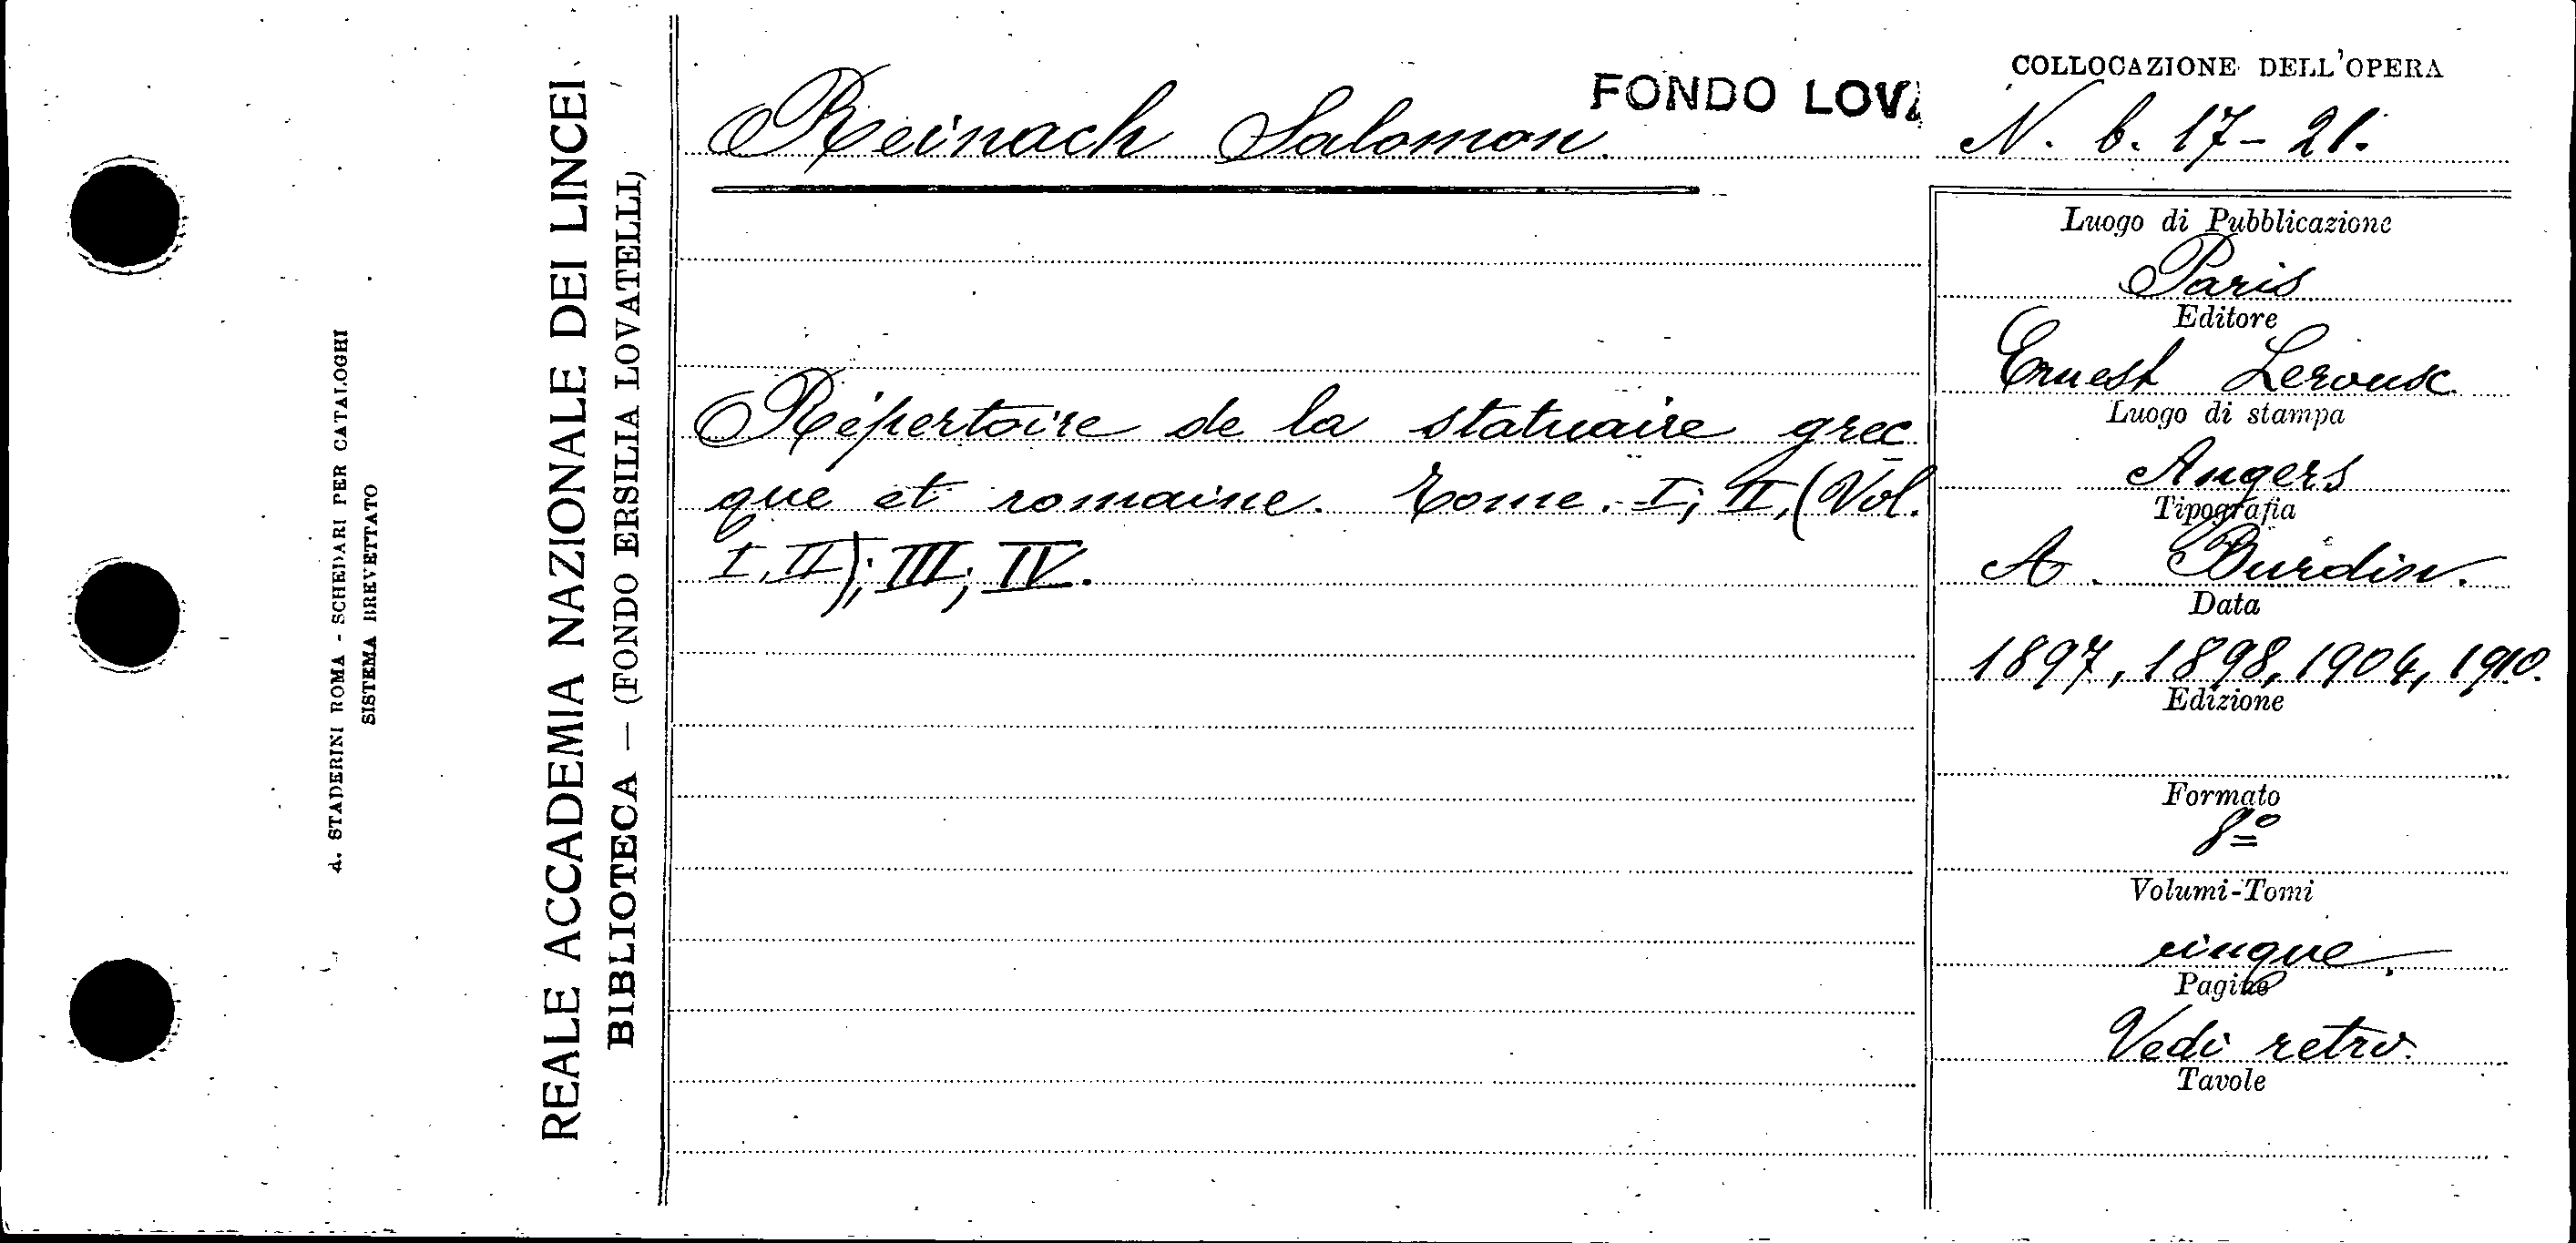 d. STADERINI ROMA - SCHEDARI PER CATALOGHI
SISTEMA BREVETTATO
REALE ACCADEMIA NAZIONALE DEI LINCEI
BIBLIOTECA — (FONDO ERSILIA LOVATELLI)
FONDO LOVA
Reinach Salomon.
Répertoire de la statuaire grec
que et romaine. Tome. I; II, (Vol.
I, II); III; IV.
COLLOCAZIONE DELL'OPERA
N. b. 17-21.
Luogo di Pubblicazione
Paris
Editore
Ernest Leroux
Luogo di stampa
Angers
Tipografia
A. Burdin.
Data
1897, 1898, 1904, 1910.
Edizione
Formato
8º
Volumi-Tomi
cinque.
Pagine
Vedi retro.
Tavole